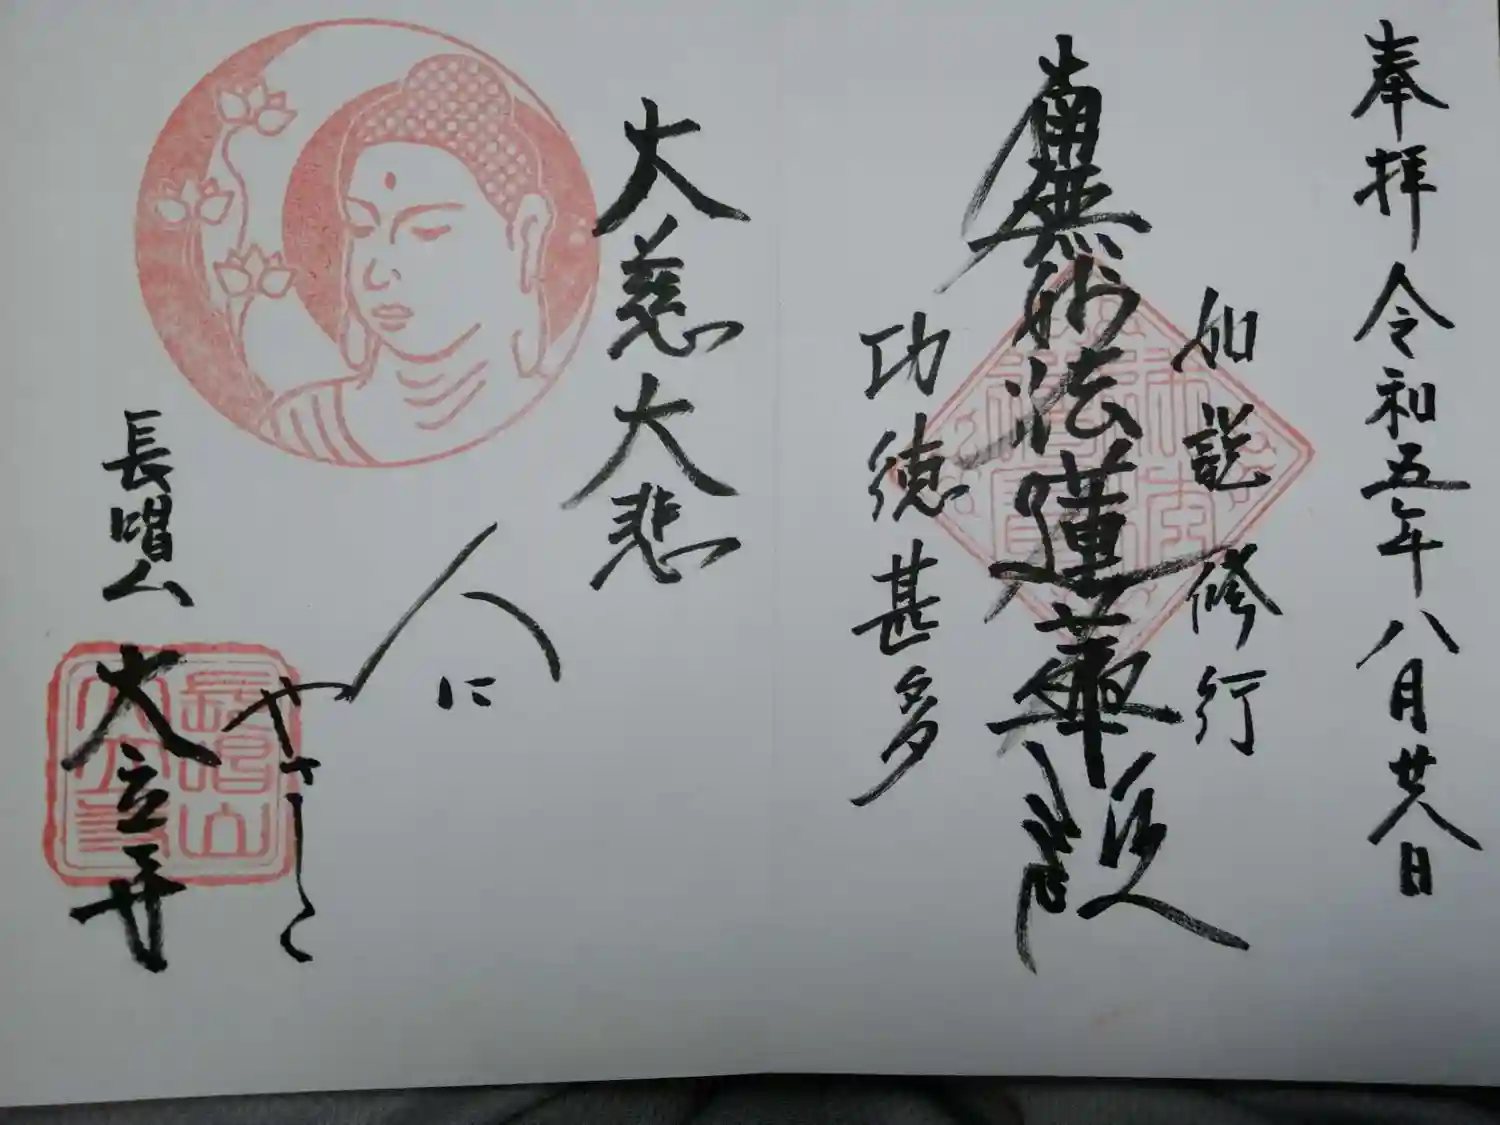 奉拝 令和五年八月廿八日
如説修行
南無妙法蓮華経
功徳甚多
大慈大悲
人に
やさしく
長唱山
大立寺
長唱山
大立寺